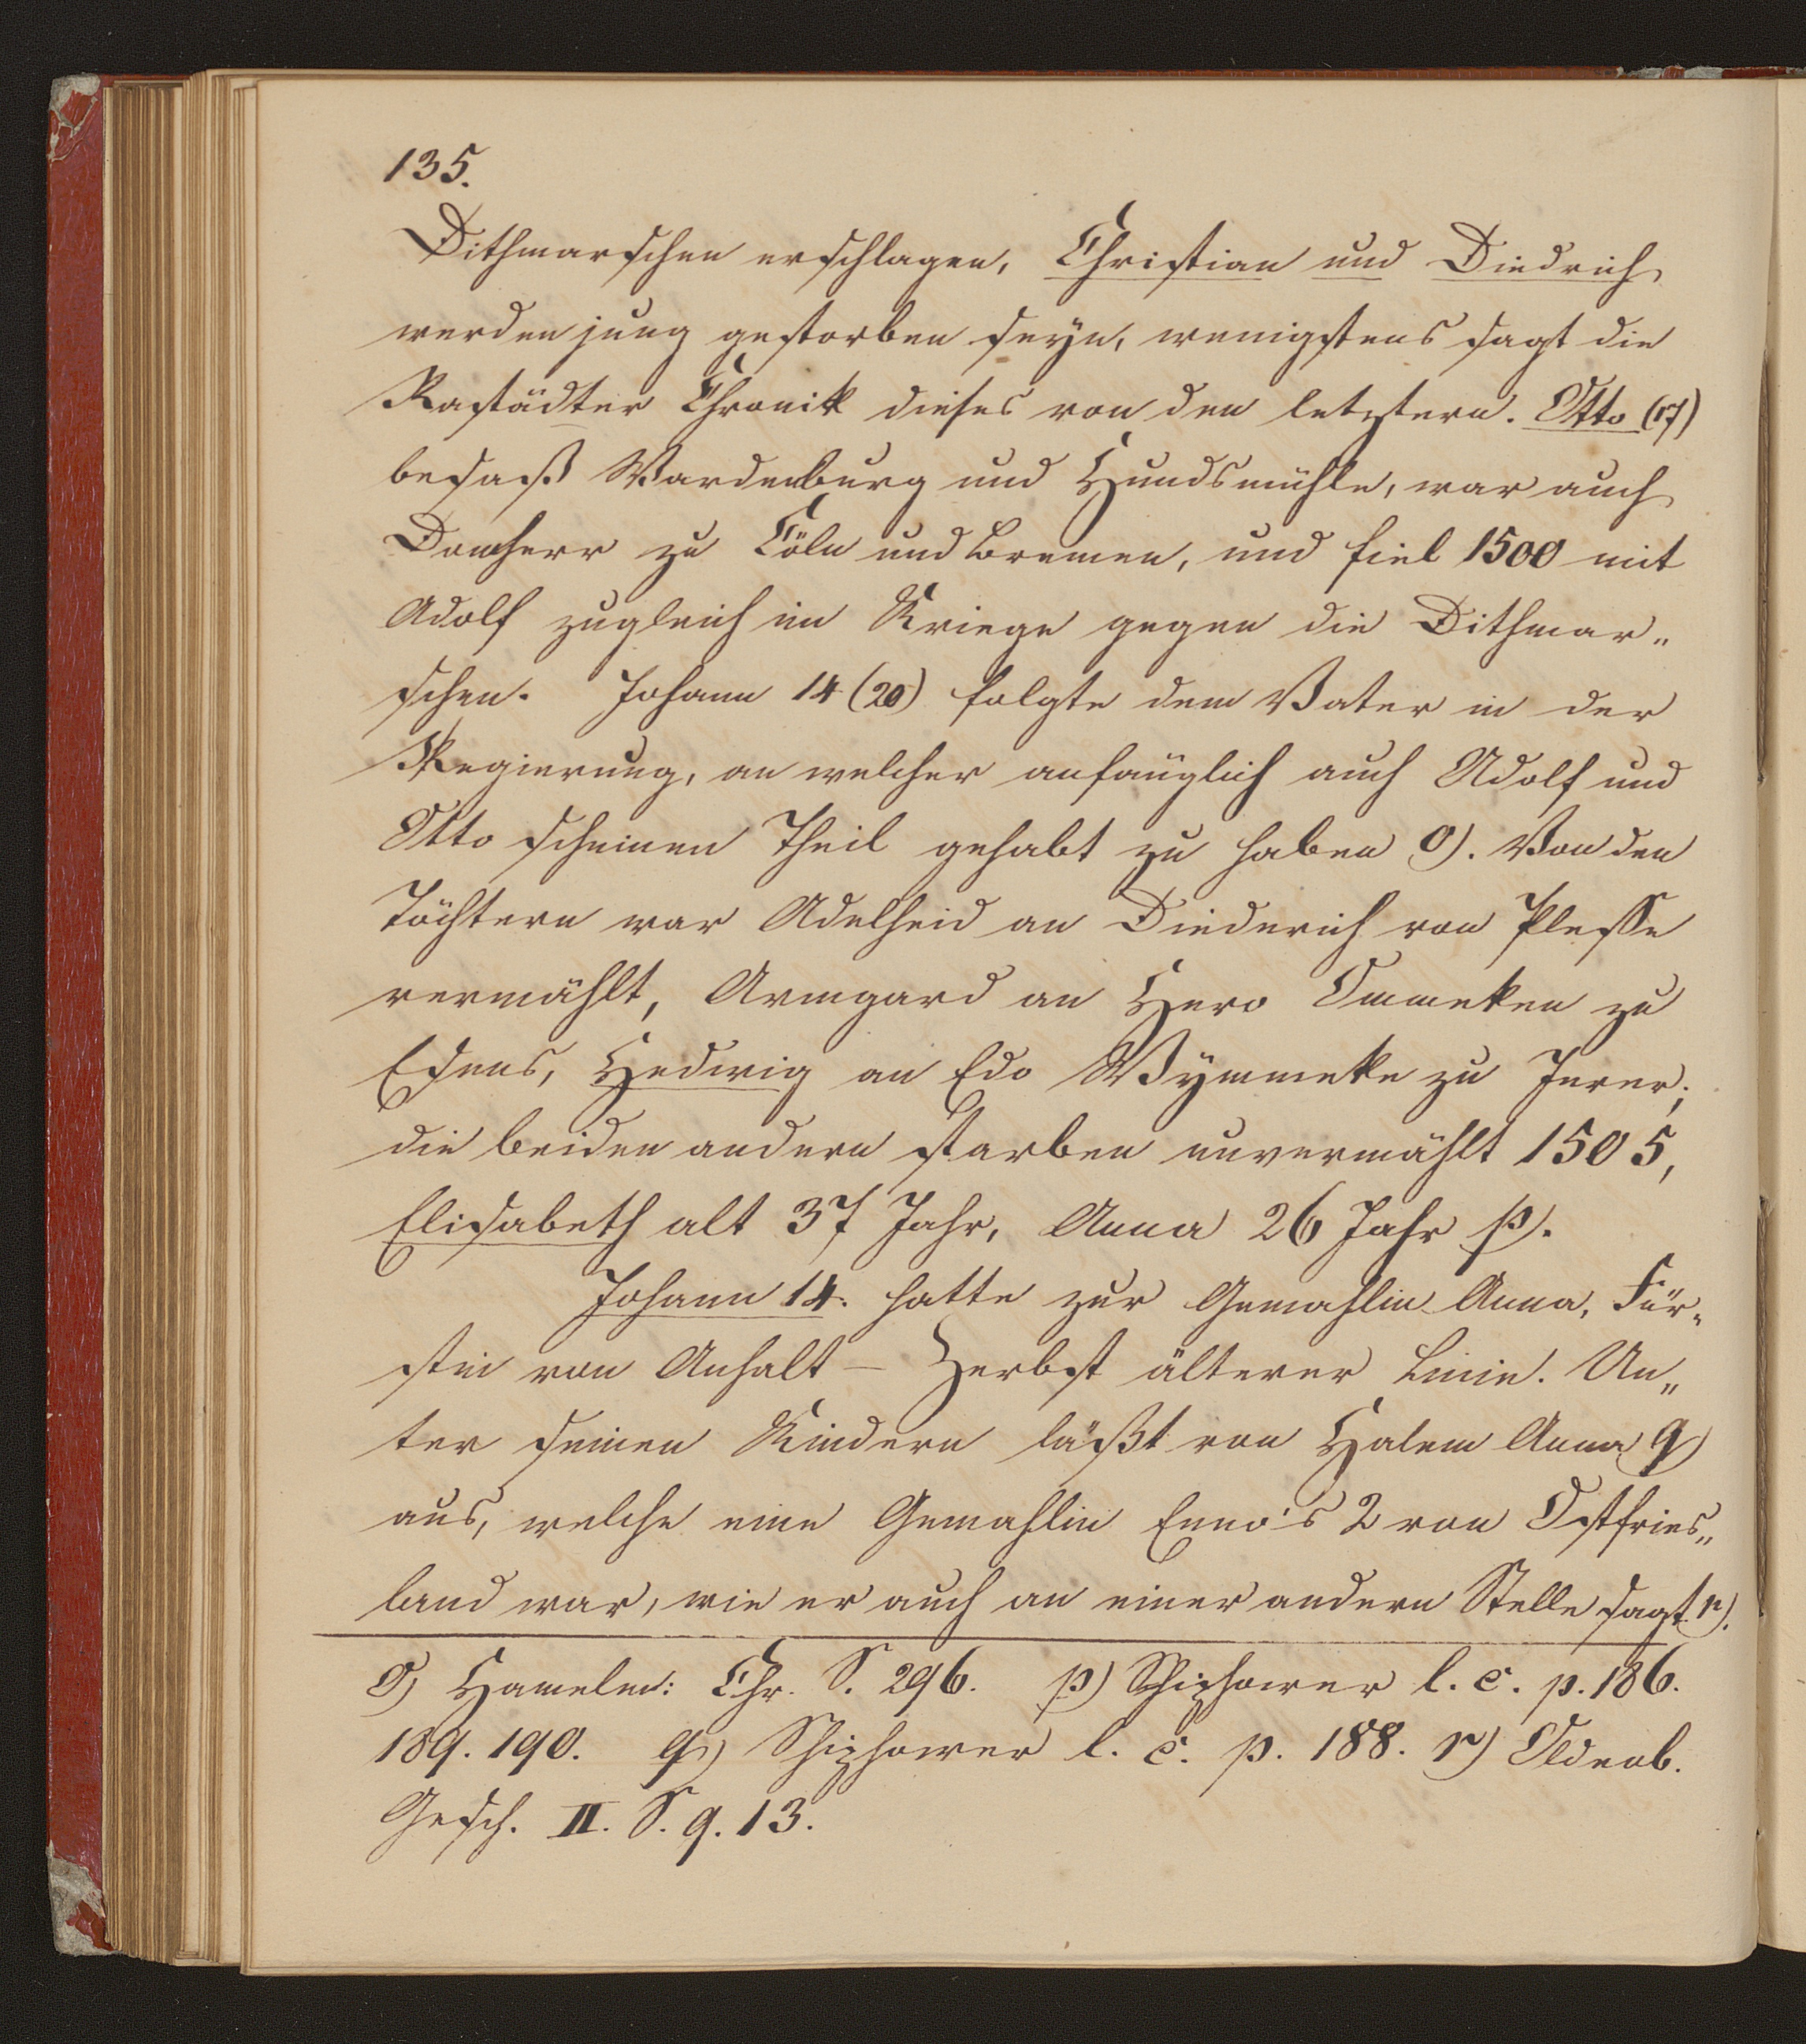 135.
Dithmarschen erschlagen, Christian und Diedrich
werden jung gestorben seyn, wenigstens sagt die
Rastädter Chronik dieses von den letztern. Otto (17)
besaß Wardenburg und Hundsmühle, war auch
Domherr zu Cöln und Bremen, und fiel 1500 mit
Adolf zugleich im Kriege gegen die Dithmar„
schen. Johann 14 (20) folgte dem Vater in der
Regierung, an welcher anfänglich auch Adolf und
Otto scheinen Theil gehabt zu haben o). Von den
Töchtern war Adelheid an Diederich von Plesse
vermählt, Armgard an Hero Ommeken zu
Esens, Hedwig an Edo Wymmeke zu Jever;
die beiden andern starben unvermählt 1505,
Elisabeth alt 37 Jahr, Anna 26 Jahr p).
Johann 14. hatte zur Gemahlin Anna, Für„
stin von Anhalt – Zerbst älterer Linie. Un„
ter seinen Kindern läßt von Halem Anna q)
aus, welche eine Gemahlin Enno's 2 von Ostfries„
land war, wie er auch an einer andern Stelle sagt r).
o) Hamelm: Chr. S. 296. p) Schiphower l. c. p. 186.
189. 190. q) Schiphower l. c. p. 188. r) Oldenb.
Gesch. II. S. 9. 13.